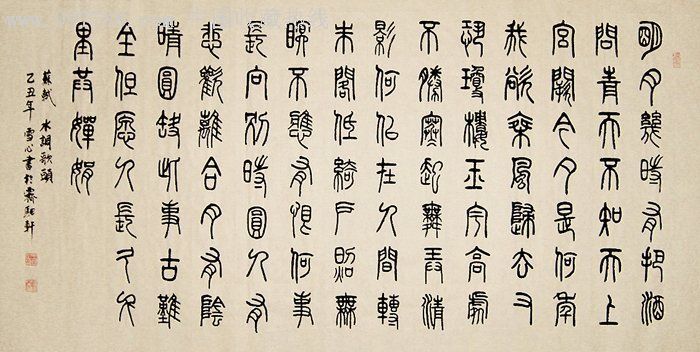 明月幾時有把酒
問青天不知天上
宮闕今夕是何年
我欲乘風歸去又
恐瓊樓玉宇高處
不勝寒起舞弄清
影何似在人間轉
朱閣低綺戶照無
眠不應有恨何事
長向別時圓人有
悲歡離合月有陰
晴圓缺此事古難
全但願人長久千
里共嬋娟
蘇軾 水調歌頭
丑年 雪心書於 軒